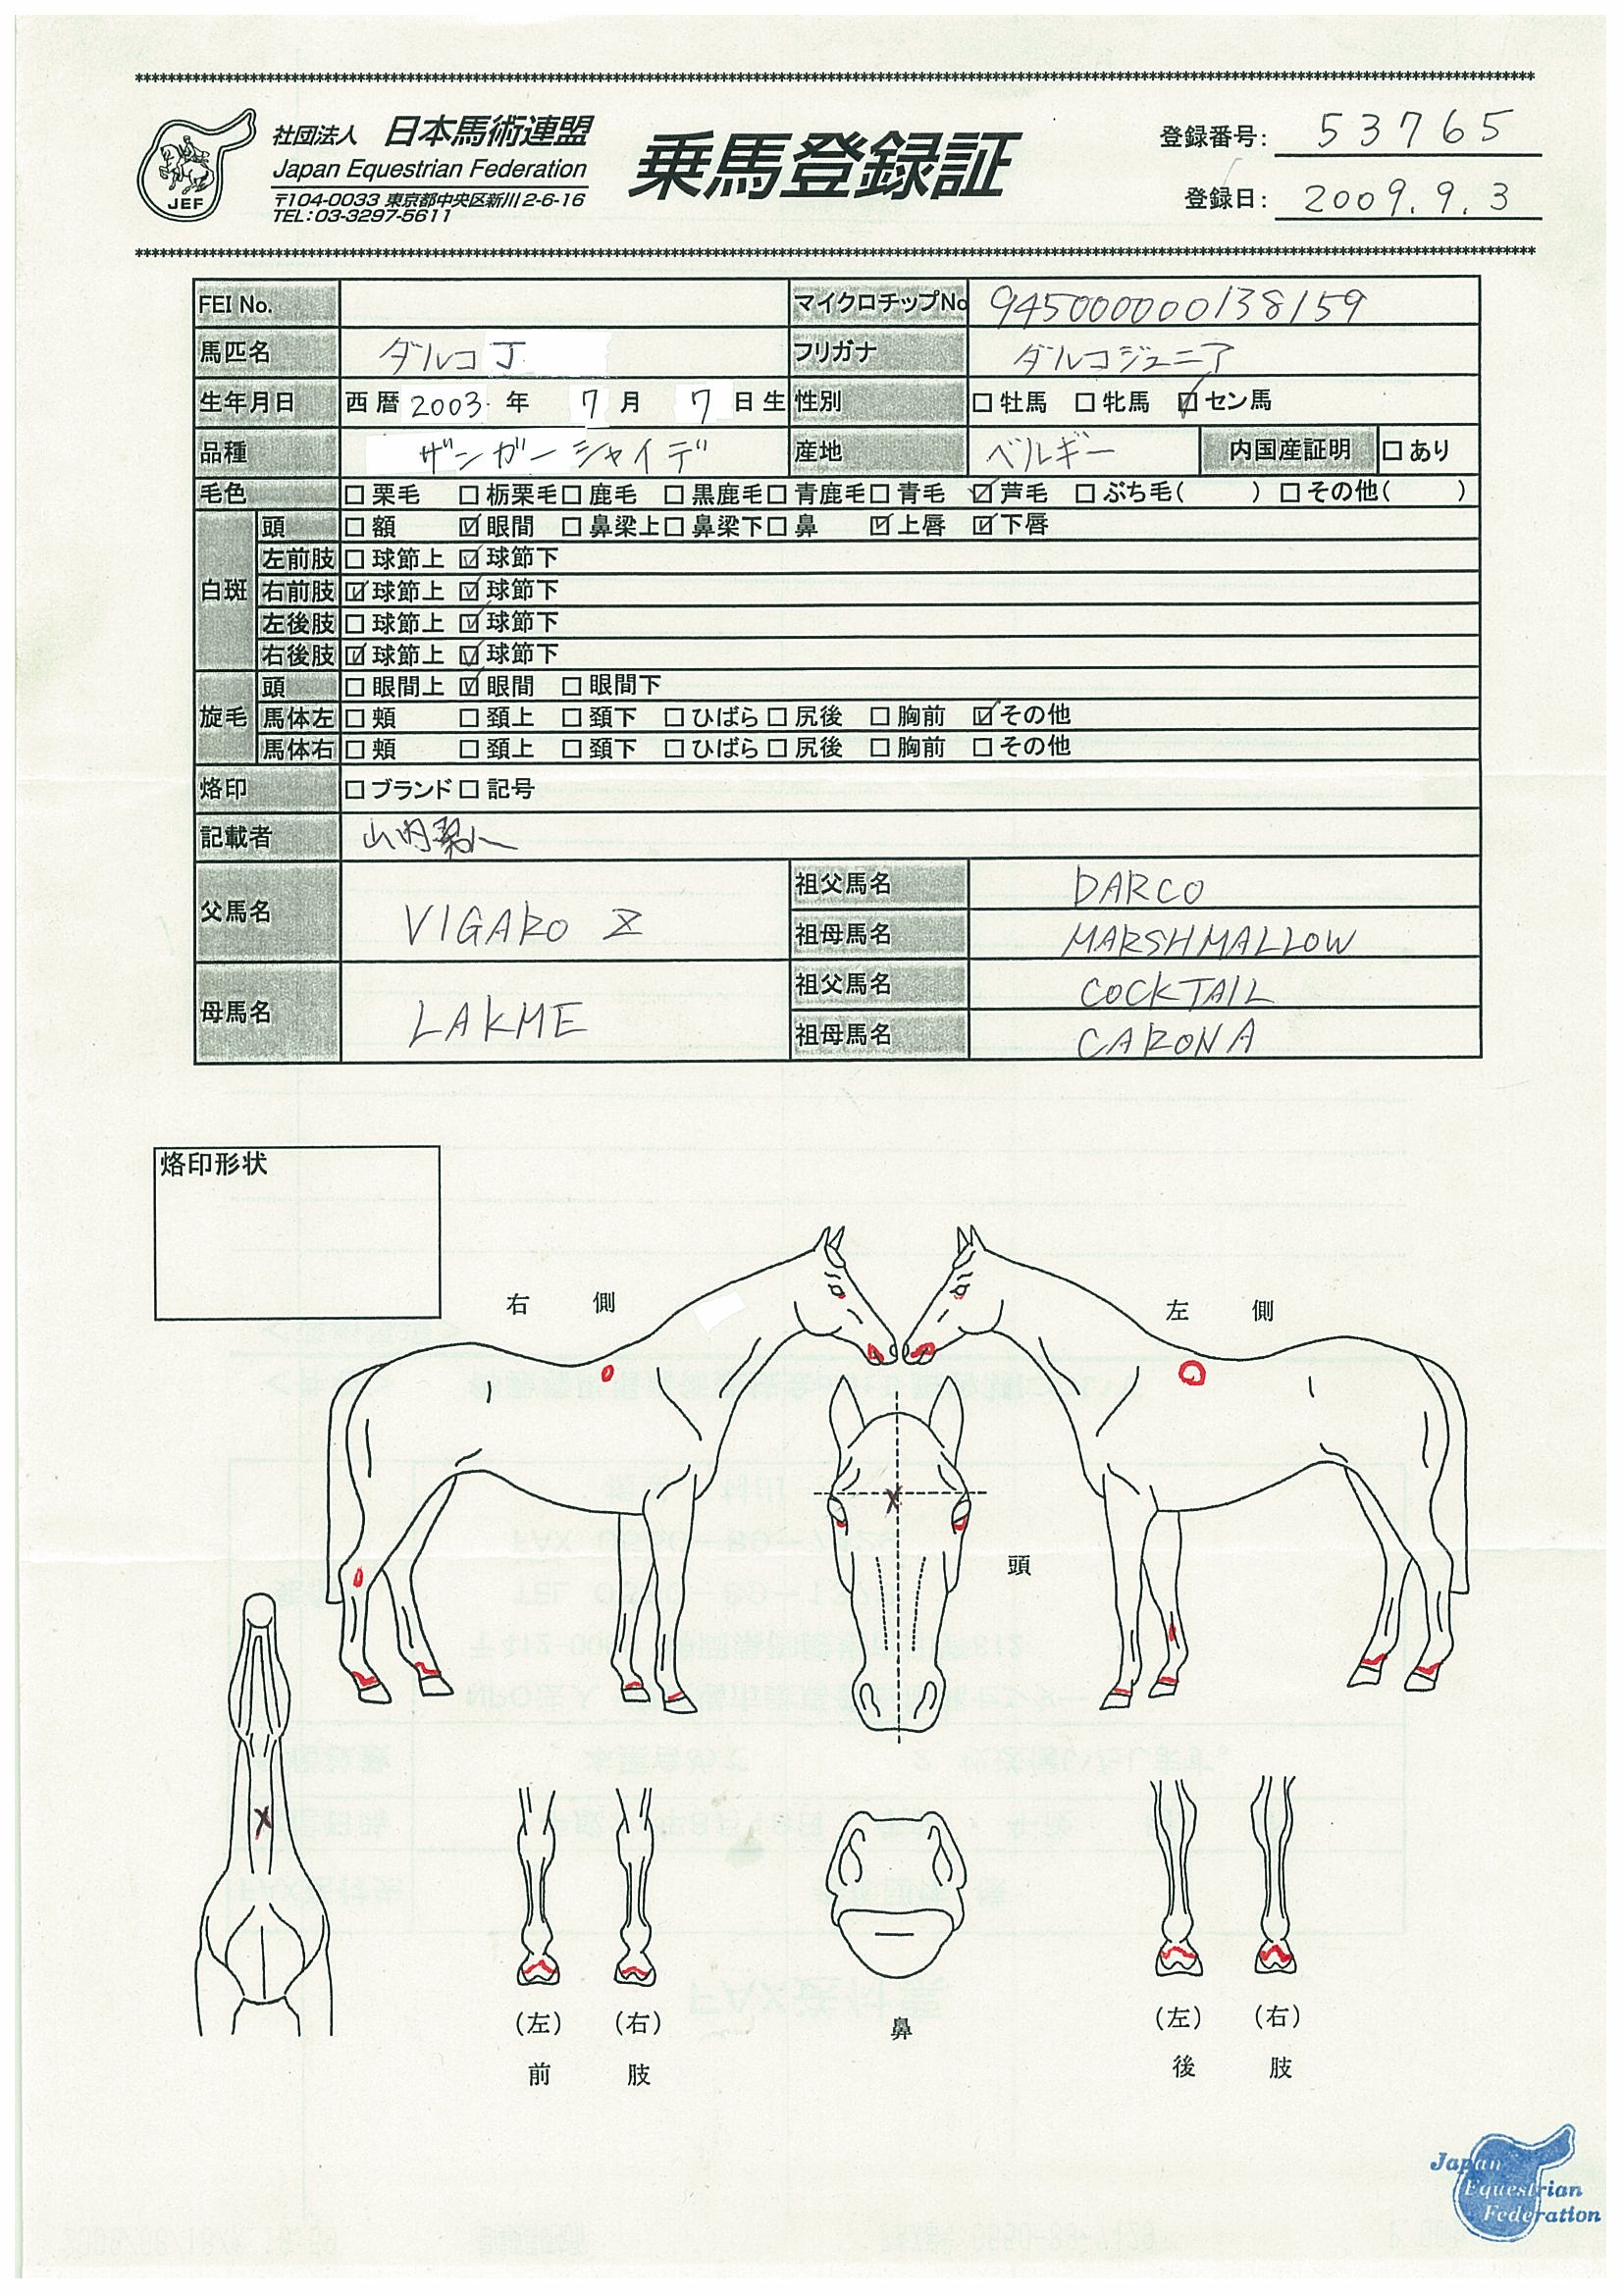 ********************************************************************************
社団法人 日本馬術連盟
Japan Equestrian Federation
〒104-0033 東京都中央区新川2-6-16
TEL:03-3297-5611
JEF
乗馬登録証
登録番号: 53765
登録日: 2009.9.3
********************************************************************************
FEI No. マイクロチップNo 945000000138159
馬匹名 ダルコ J フリガナ ダルコジュニア
生年月日 西暦 2003 年 7 月 7 日生 性別 □ 牡馬 □ 牝馬 ☑ セン馬
品種 ザンガーシャイデ 産地 ベルギー 内国産証明 □ あり
毛色 □ 栗毛 □ 栃栗毛 □ 鹿毛 □ 黒鹿毛 □ 青鹿毛 □ 青毛 ☑ 芦毛 □ ぶち毛( ) □ その他( )
白斑 頭 □ 額 ☑ 眼間 □ 鼻梁上 □ 鼻梁下 □ 鼻 ☑ 上唇 ☑ 下唇
左前肢 □ 球節上 ☑ 球節下
右前肢 ☑ 球節上 ☑ 球節下
左後肢 □ 球節上 ☑ 球節下
右後肢 ☑ 球節上 ☑ 球節下
旋毛 頭 □ 眼間上 ☑ 眼間 □ 眼間下
馬体左 □ 頬 □ 頚上 □ 頚下 □ ひばら □ 尻後 □ 胸前 ☑ その他
馬体右 □ 頬 □ 頚上 □ 頚下 □ ひばら □ 尻後 □ 胸前 □ その他
烙印 □ ブランド □ 記号
記載者 山内
父馬名 VIGARO Z 祖父馬名 DARCO
祖母馬名 MARSHMALLOW
母馬名 LAKME 祖父馬名 COCKTAIL
祖母馬名 CARONA
烙印形状
右 側
左 側
頭
(左) (右)
前 肢
鼻
(左) (右)
後 肢
Japan
Equestrian
Federation